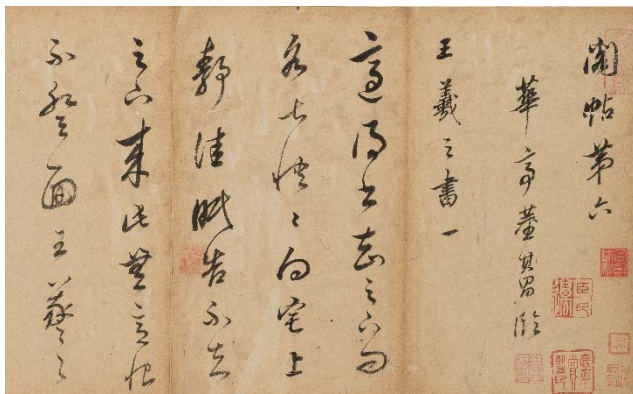 閣帖第六
華亭董其昌臨
王羲之書一
適得書知足下問
吾甚憒〻向宅上
靜佳眠不知
足下來此無意恨
不暫面王羲之